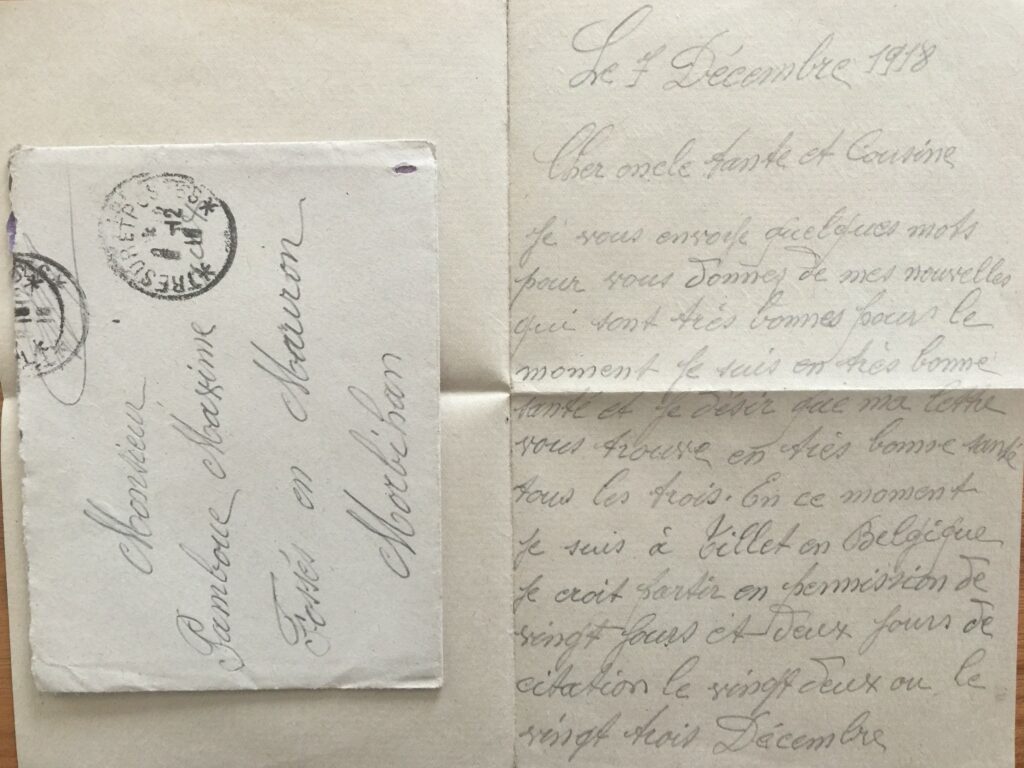 Le 7 Décembre 1918
Cher oncle tante et Cousine
Je vous envoye quelques mots
pour vous donnez de mes nouvelles
qui sont très bonnes pours le
moment Je suis en très bonne
santé et Je désir que ma lettre
vous trouve en très bonne santé
tous les trois. En ce moment
Je suis à Tillet en Belgique
Je croit partir en permission de
vingt Jours et deux Jours de
citation le vingt deux ou le
vingt trois Décembre
TRESOR ET POSTES
12
Monsieur
Pambouc Maxime
Fossés en Mauron
Morbihan